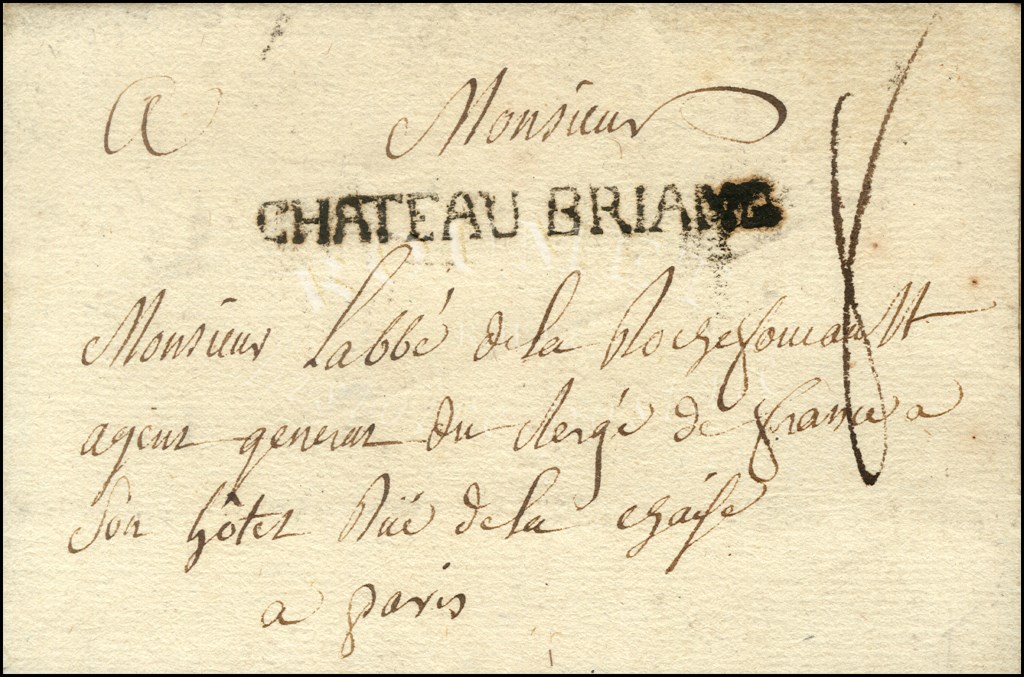 A Monsieur
CHATEAU BRIAND
Monsieur Labbé de la Rochefoucault
agent general du clergé de france a
Son hôtel Rüe de la chaise
a paris
8